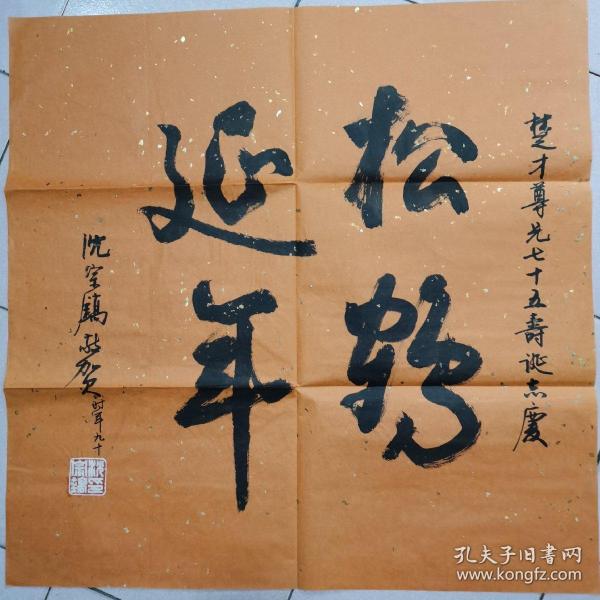 楚才尊兄七十五壽诞志慶
松鹤
延年
沈宗镐敬贺时年九十
孔夫子旧书网
www.kongfz.com